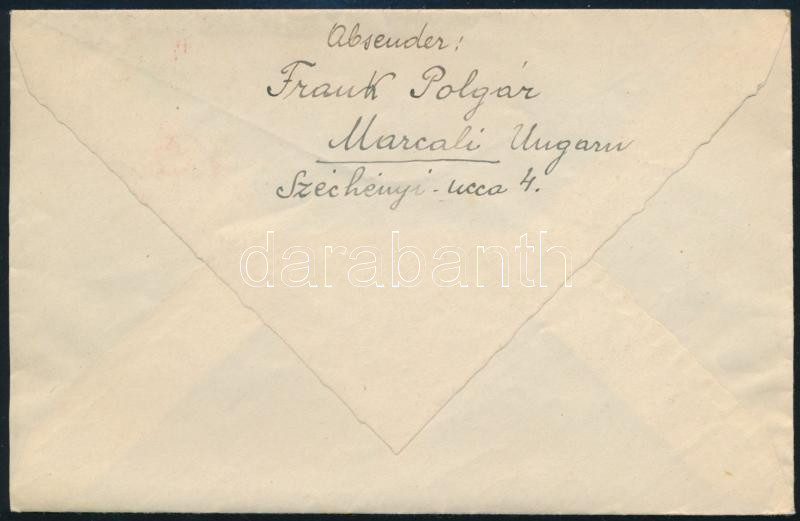 Absender:
Frank Polgár
Marcali Ungarn
Széchényi-ucca 4.
darabanth